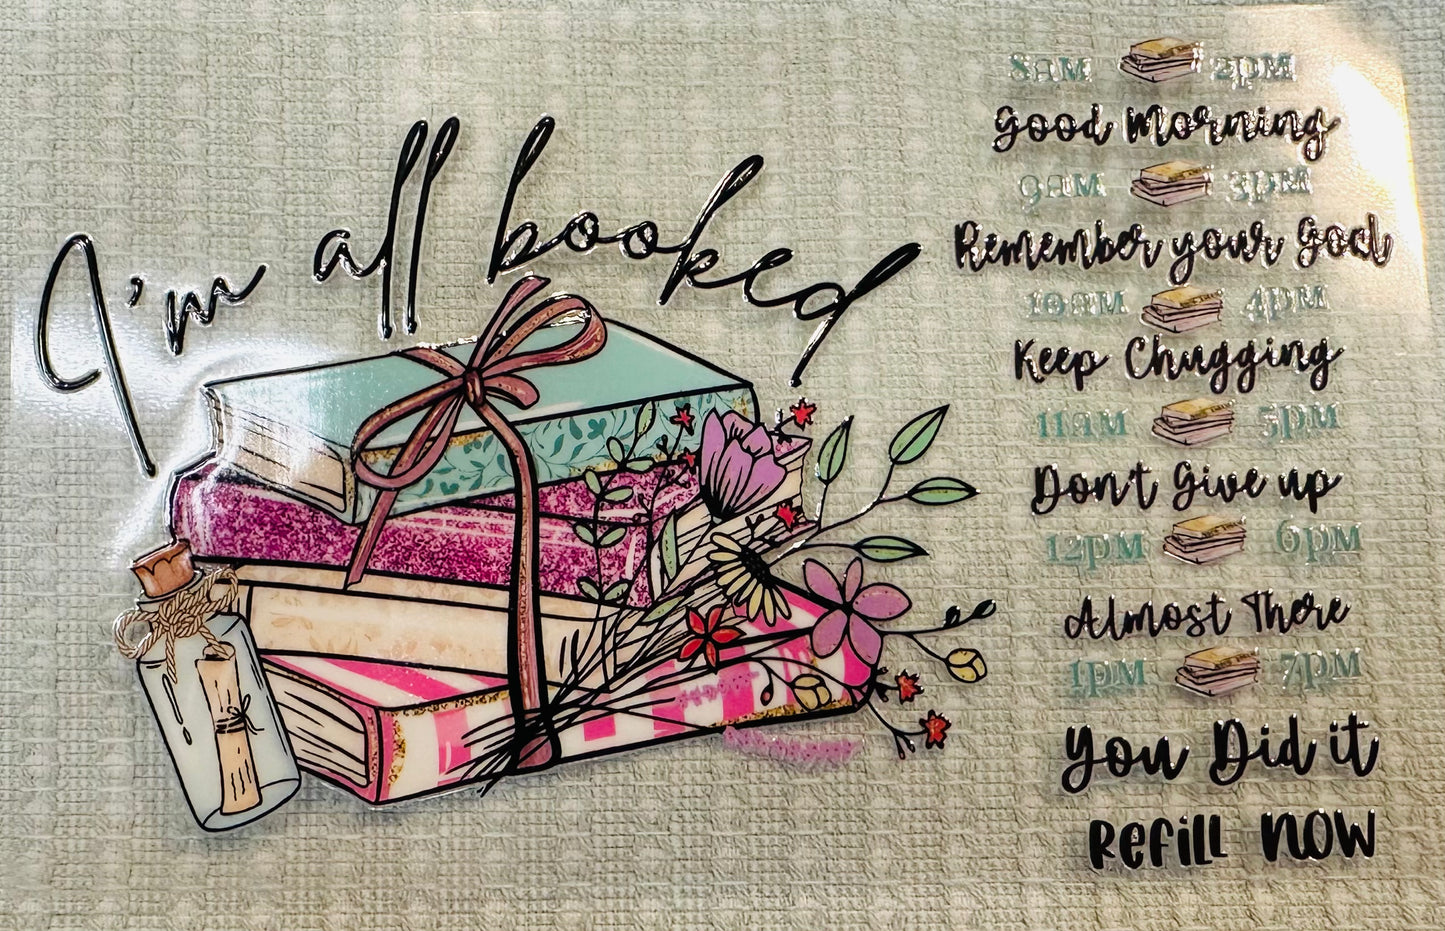 I'm all booked
8AM 2PM
Good Morning
9AM 3PM
Remember your God
10AM 4PM
Keep Chugging
11AM 5PM
Don't Give up
12PM 6PM
Almost There
1PM 7PM
You Did it
Refill NOW